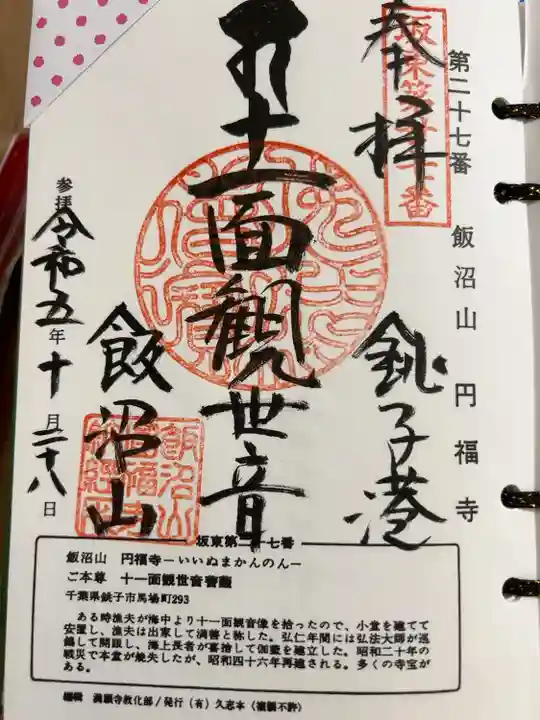 第二十七番 飯沼山 円福寺
奉拝
銚子港
十一面観世音
飯沼山
参拝 令和五年十月二十八日
坂東第二十七番
飯沼山 円福寺−いいぬまかんのん−
ご本尊 十一面観世音菩薩
千葉県銚子市馬場町293
ある時漁夫が海中より十一面観音像を拾ったので、小堂を建てて
安置し、漁夫は出家して満善と称した。弘仁年間には弘法大師が巡
錫して開眼し、海上長者が喜捨して伽藍を建立した。昭和二十年の
戦災で本堂が焼失したが、昭和四十六年再建される。多くの寺宝が
ある。
編輯 満願寺教化部/発行(有)久志本(複製不許)